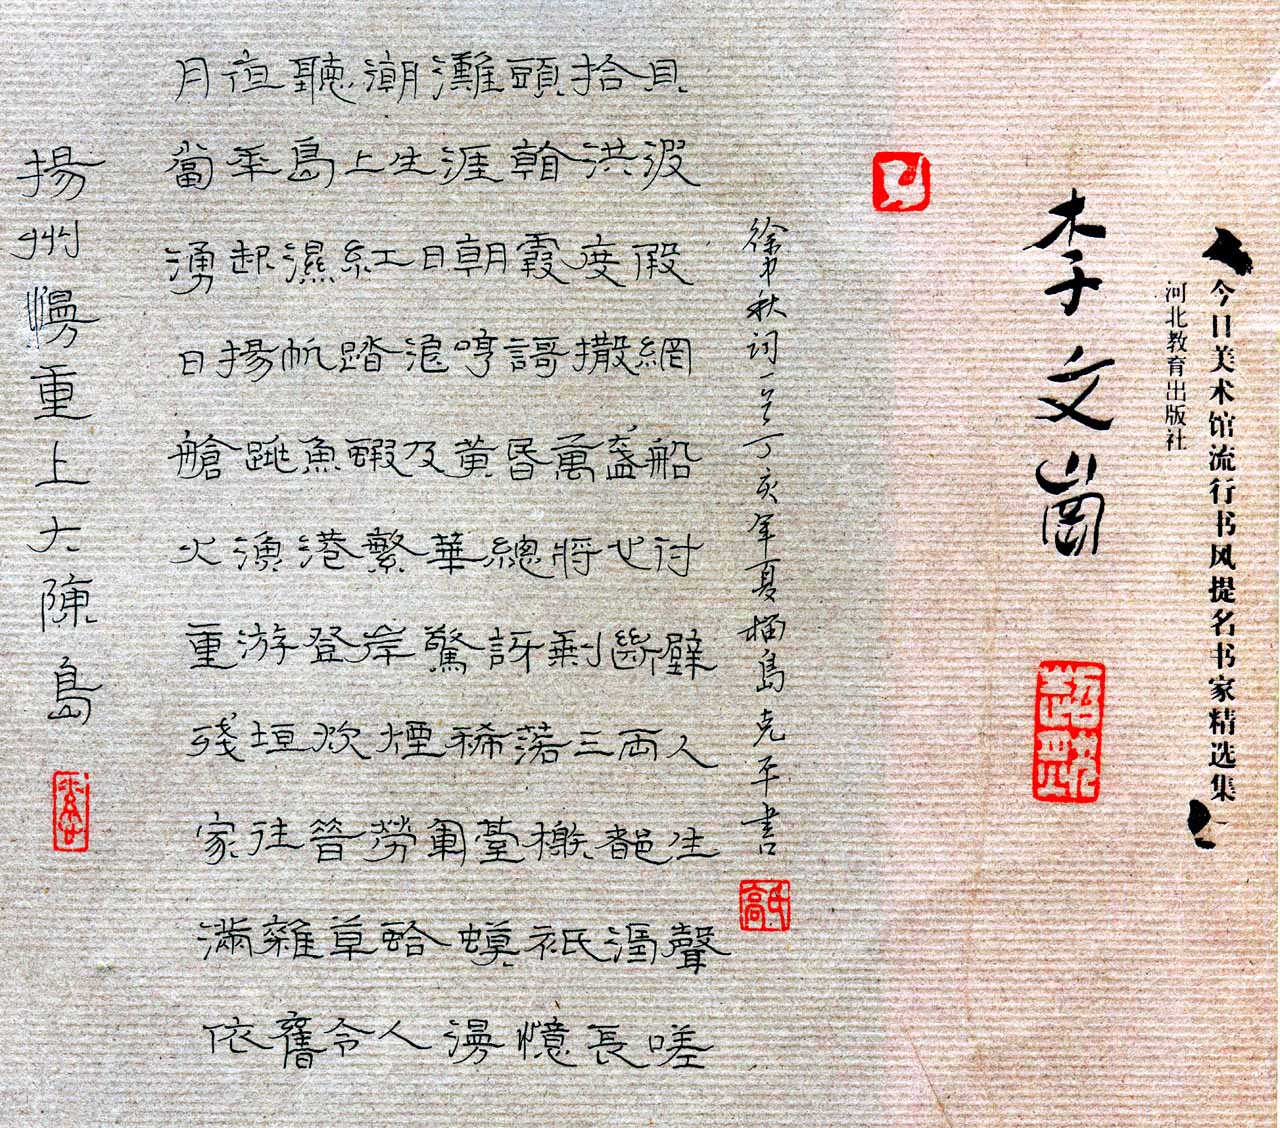 揚州慢重上大陳島
月夜聽潮灘頭拾貝
當年島上生涯看洪波
湧起濕紅日朝霞度假
日揚帆踏浪哼謌撒網
艙跳魚蝦及黃昏萬盞船
火漁港繁華總將也付
重游登岸驚訝剩斷壁
殘垣炊煙稀落三兩人
家往昔勞軍臺榭都生
滿雜草蛤蟆祇濤聲
依舊令人漫憶長嗟
徐中秋詞一首丁亥年夏楠島克平書
李文崗
河北教育出版社
今日美术馆流行书风提名书家精选集